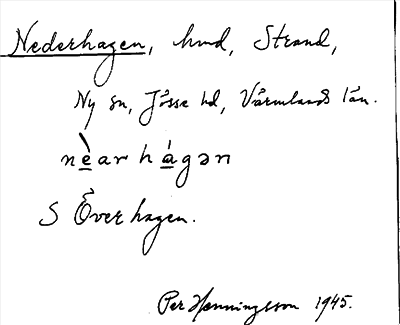 Nederhagen, hmd, Strand,
Ny sn, Jösse hd, Värmlands län.
nèar hágən
S Överhagen.
Per Henningsson 1945.